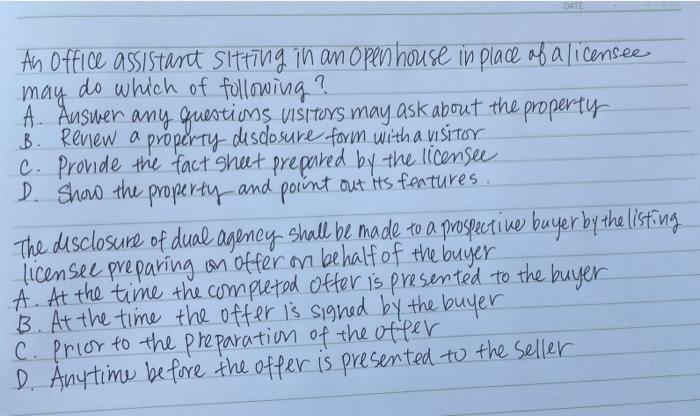 DATE
An office assistant sitting in an open house in place of a licensee
may do which of following?
A. Answer any questions visitors may ask about the property
B. Review a property disclosure form with a visitor
C. Provide the fact sheet prepared by the licensee
D. Show the property and point out its features.
The disclosure of dual agency shall be made to a prospective buyer by the listing
licensee preparing an offer on behalf of the buyer
A. At the time the completed offer is presented to the buyer
B. At the time the offer is signed by the buyer
C. Prior to the preparation of the offer
D. Anytime before the offer is presented to the seller